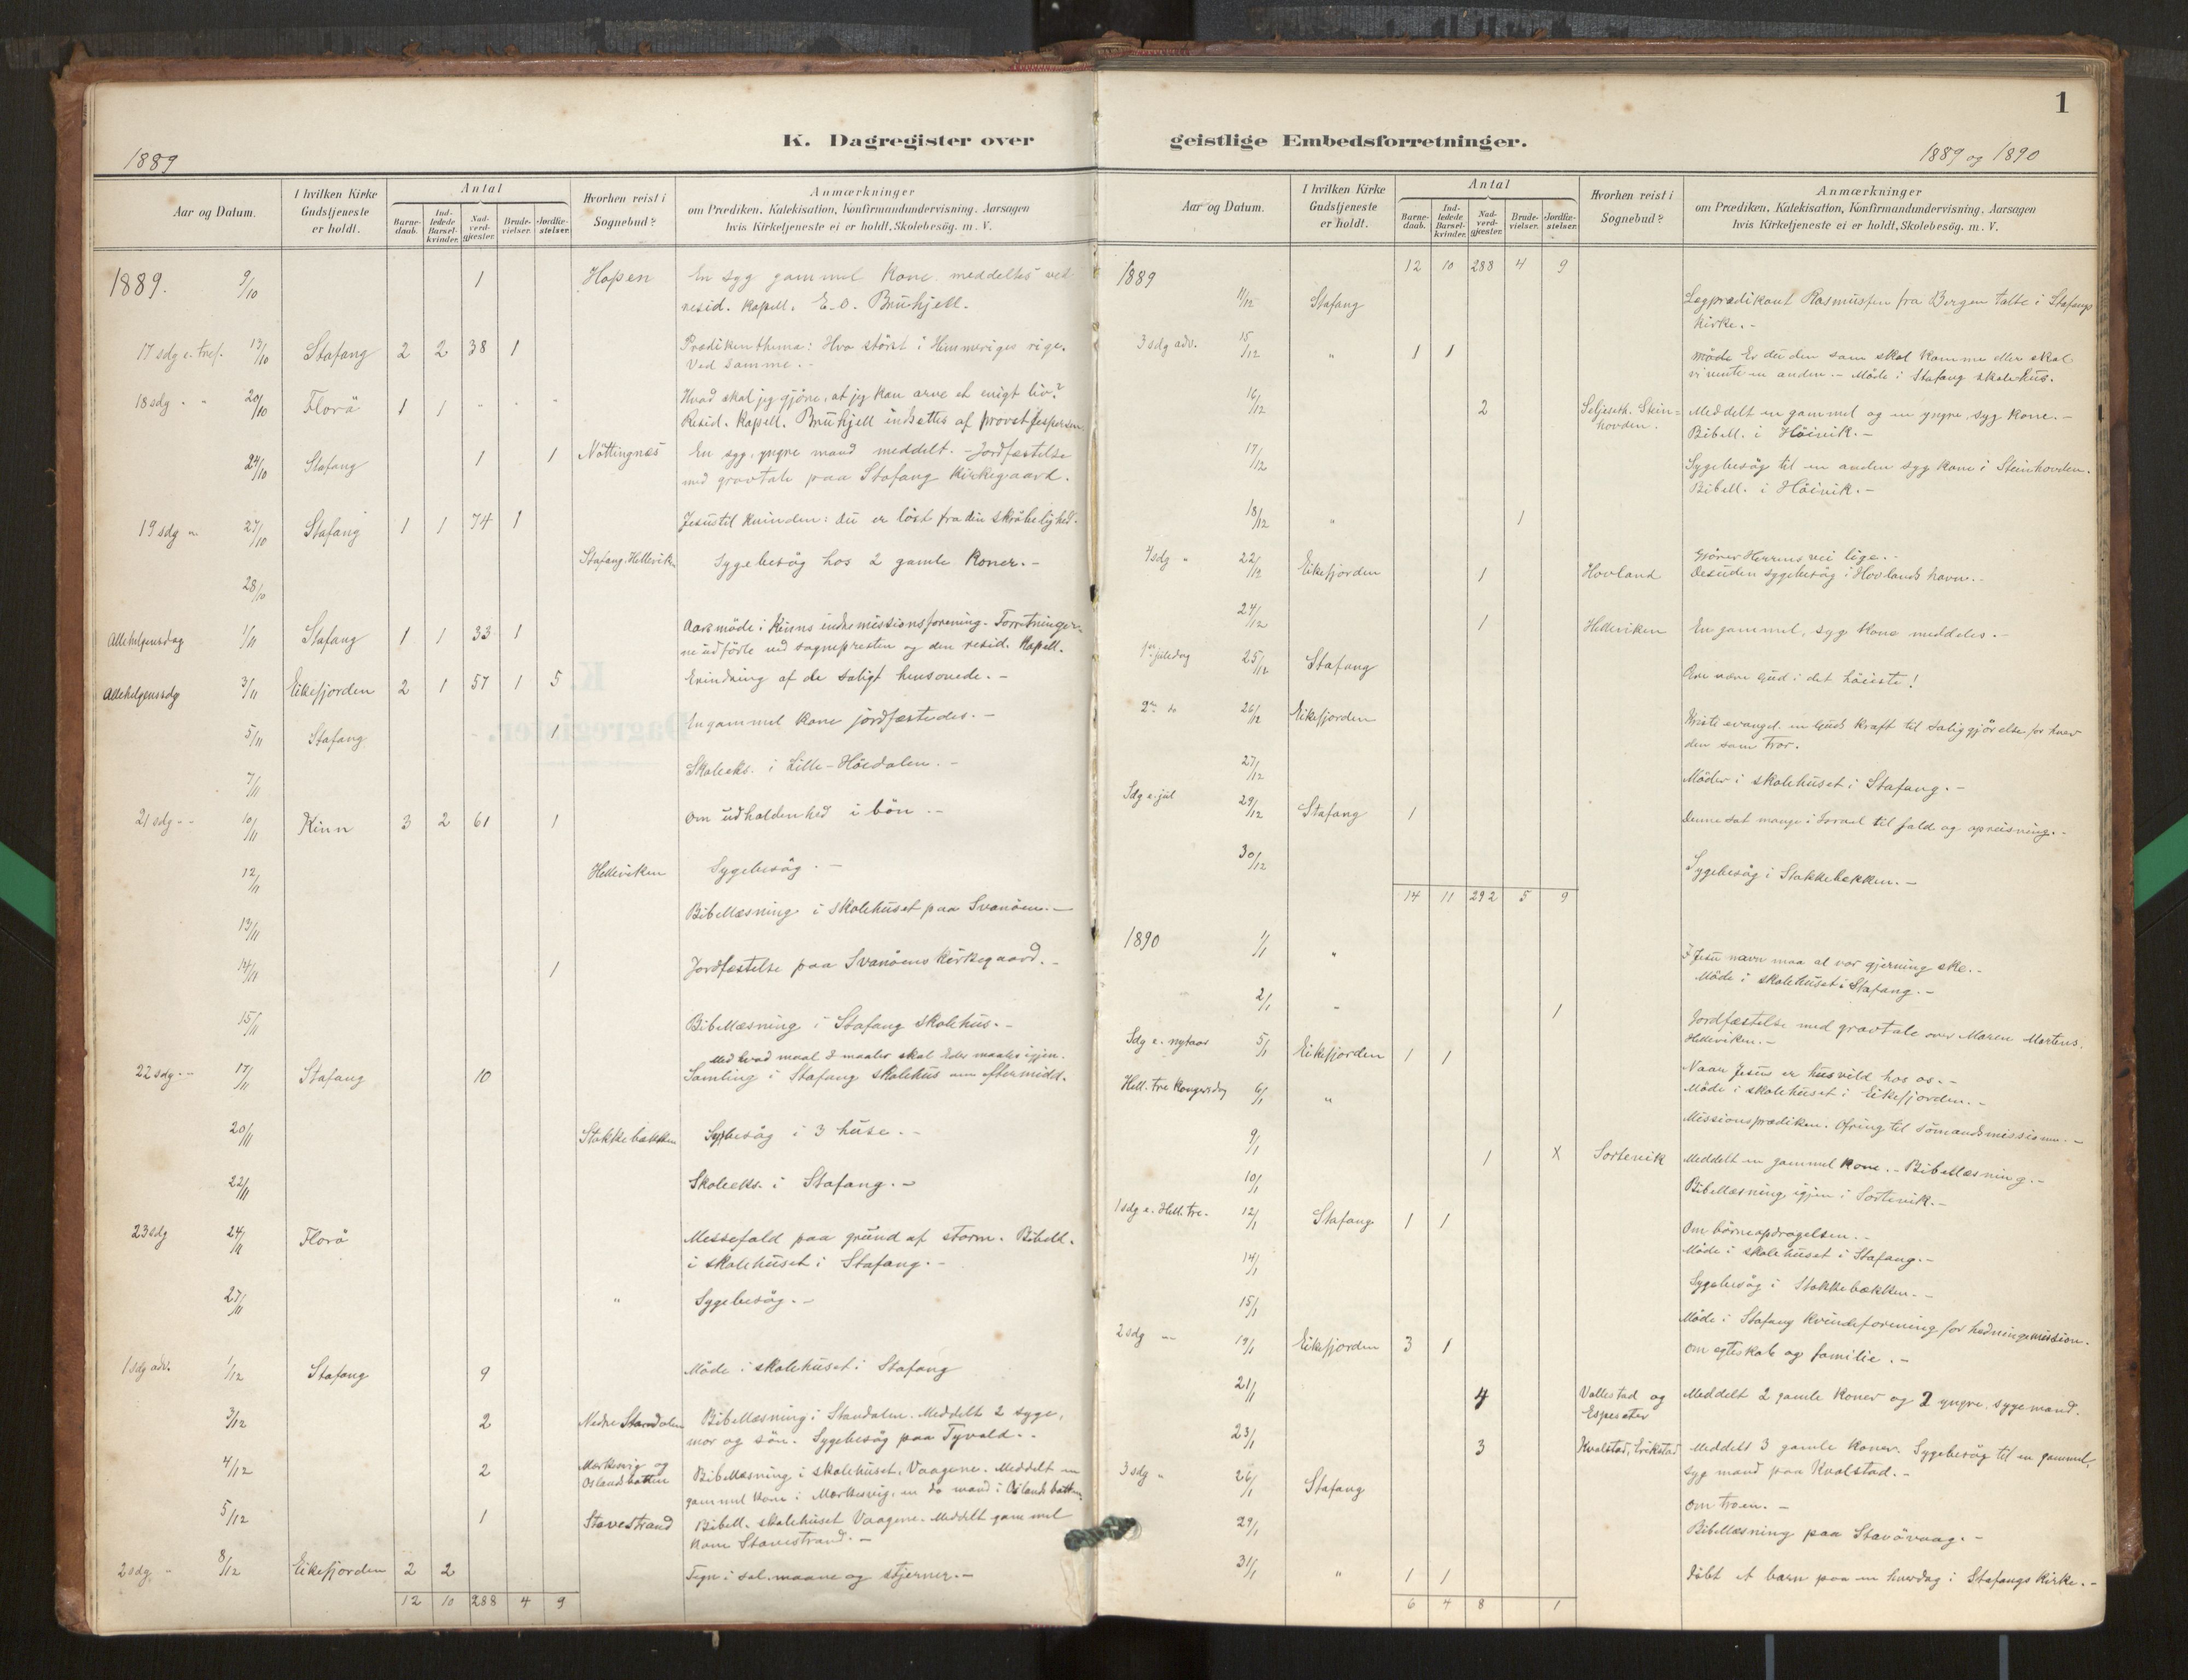 1
K. Dagregister over geistlige Embedsforretninger.
1889
Aar og Datum. I hvilken Kirke Gudstjeneste er holdt. Antal Barne-daab. Ind-ledede Barsel-kvinder. Nad-verd-gjæster. Brude-vielser. Jordfæ-stelser. Hvorhen reist i Sognebud? Anmærkninger
om Prædiken, Katekisation, Konfirmandundervisning, Aarsagen
hvis Kirketjeneste ei er holdt, Skolebesög. m. V.
1889. 9/10 1 Hopen En syg gammel kone meddeltes ved
resid. kapell. E. O. Bruhjell.
17 sdg e. tref. 13/10 Stafang 2 2 38 1 Prædikenthema: Hvo störst i Himmeriges rige.
Ved samme. -
18 sdg " " 20/10 Florö 1 1 - - - Hvad skal jeg gjöre, at jeg kan arve et evigt liv?
Resid. kapell. Bruhjell indsattes af provst Jespersen.
24/10 Stafang 1 1 Nöttingnæs En syg, yngre mand meddelt. - Jordfæstelse
med gravtale paa Stafang kirkegaard.
19 sdg " 27/10 Stafang 1 1 74 1 Jesus til kvinden: du er löst fra din skröbelighed.
28/10 Stafang. Helleviken Sygebesög hos 2 gamle koner. -
Allehelgensdag 1/11 Stafang 1 1 33 1 Aarsmöde i Kinns indremissionsforening. Forretninger-
ne udförte ved sognepresten og den resid. kapell.
Allehelgenssdg 3/11 Eikefjorden 2 1 57 1 5 Erindring af de saligt hensovede. -
5/11 Stafang 1 En gammel kone jordfæstedes. -
7/11 Skoleeks. i Lille-Höidalen. -
21 sdg - - 10/11 Kinn 3 2 61 1 Om udholdenhed i bön. -
12/11 Helleviken Sygebesög. -
13/11 Bibellæsning i skolehuset paa Svanöen. -
14/11 1 Jordfæstelse paa Svanöens kirkegaard. -
15/11 Bibellæsning i Stafang skolehus. -
22 sdg. - 17/11 Stafang 10 Med hvad maal I maaler skal Eder maales igjen.
Samling i Stafang skolehus om eftermidd.
20/11 Stokkebækken Sygebesög i 3 huse. -
22/11 Skoleeks. i Stafang. -
23 sdg 24/11 Florö Messefald paa grund af storm. Bibell.
i skolehuset i Stafang. -
27/11 " Sygebesög. -
1 sdg adv. 1/12 Stafang 9 Möde i skolehuset i Stafang
3/12 2 Nedre Standalen Bibellæsning i Standalen. Meddelt 2 syge,
mor og sön. Sygebesög paa Tyvold. -
4/12 2 Morkesvig og Oslandsbotten Bibellæsning i skolehuset, Vaagene. Meddelt en
gammel kone i Morkesvig, en do mand i Oslandsbotten
5/12 1 Stavestrand Bibell. skolehuset Vaagene. Meddelt gammel
kone Stavestrand. -
2 sdg. " 8/12 Eikefjorden 2 2 Tegn i sol, maane og stjerner. -
12 10 288 4 9
1889 og 1890
Aar og Datum. I hvilken Kirke Gudstjeneste er holdt. Antal Barne-daab. Ind-ledede Barsel-kvinder. Nad-verd-gjæster. Brude-vielser. Jordfæ-stelser. Hvorhen reist i Sognebud? Anmærkninger
om Prædiken, Katekisation, Konfirmandundervisning, Aarsagen
hvis Kirketjeneste ei er holdt, Skolebesög. m. V.
1889 12 10 288 4 9
11/12 Stafang Lægprædikant Rasmussen fra Bergen talte i Stafangs
kirke. -
3 sdg adv. 15/12 " 1 1 Er du den som skal komme eller skal
vi vente en anden. - Möde i Stafang skolehus.
16/12 2 Seljeseth. Stein=hovden. Meddelt en gammel og en yngre, syg kone. -
Bibell. i Höivik. -
17/12 Sygebesög til en anden syg kone i Steinhovden.
Bibell. i Höivik. -
18/12 " 1
4 sdg " 22/12 Eikefjorden 1 Hovland Gjörer Herrens vei lige. -
Desuden sygebesög i Hovlands havn. -
24/12 1 Helleviken En gammel, syg kone meddeles. -
1ste juledag 25/12 Stafang Ære være Gud i det höieste!
2den do 26/12 Eikefjorden Kristi evangel. en Guds kraft til saliggjörelse for hver
den som tror.
27/12 Möder i skolehuset i Stafang. -
Sdg e. jul 29/12 Stafang 1 Denne sat mange i Israel til fald og opreisning. -
30/12 Sygebesög i Stokkebækken. -
14 11 292 5 9
1890 1/1 " I Jesu navn maa al vor gjerning ske. -
Möde i skolehuset i Stafang. -
2/1 " 1 Jordfæstelse med gravtale over Maren Martens.
Helleviken. -
Sdg e. nytaar 5/1 Eikefjorden 1 1 Naar Jesus er husvild hos os. -
Möde i skolehuset i Eikefjorden. -
Hell. tre kongersdag 6/1 " Missionsprædiken. Ofring til sömandsmissionen. -
9/1 1 X Sortevik Meddelt en gammel kone. - Bibellæsning. -
10/1 Bibellæsning igjen i Sortevik. -
1 sdg e. Hell. tre. 12/1 Stafang 1 1 Om börneopdragelsen. -
Möde i skolehuset i Stafang. -
14/1 Sygebesög i Stokkebækken. -
15/1 Möde i Stafang kvindeforening for hedningemission.
2 sdg " 19/1 Eikefjorden 3 1 Om egteskab og familie. -
21/1 4 Vallestad og Espeseter Meddelt 2 gamle koner og 2 yngre, syge mænd.
23/1 3 Kvalstad, Erikstad Meddelt 3 gamle koner. Sygebesög til en gammel,
syg mand paa Kvalstad. -
3 sdg " 26/1 Stafang Om troen. -
29/1 Bibellæsning paa Stavövaag. -
31/1 " 1 1 Döbt et barn paa en hverdag i Stafangs kirke. -
6 4 8 1